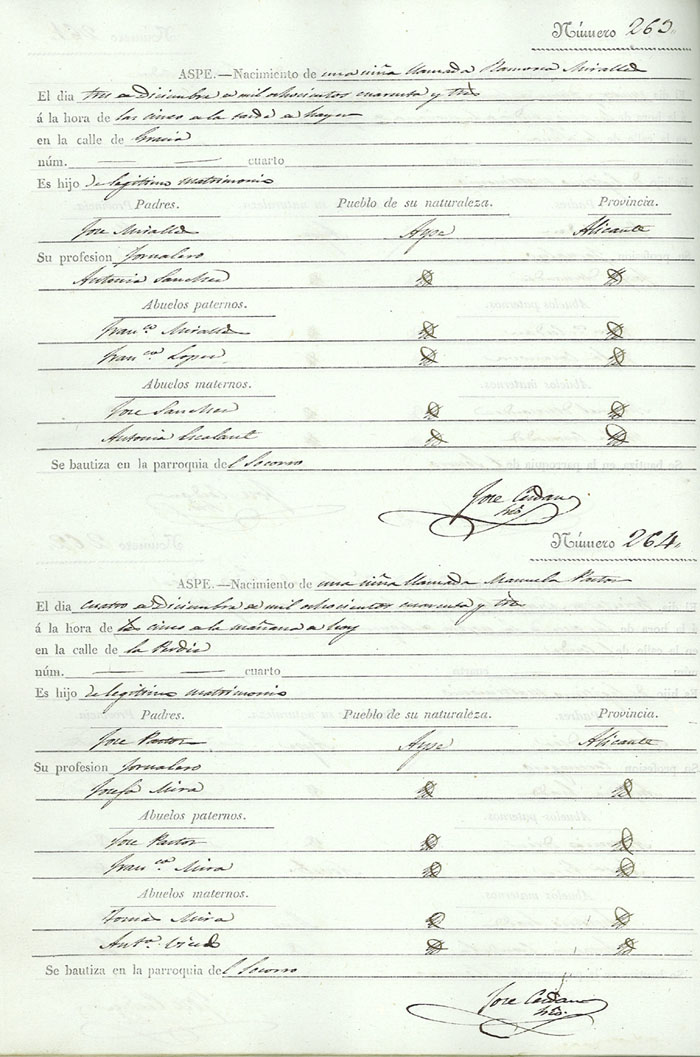 Número 263.
ASPE.—Nacimiento de una niña llamada Ramona Miralles
El dia tres de Diciembre de mil ochocientos cuarenta y tres
á la hora de las cinco de la tarde de hayer
en la calle de Gracia
núm. — — cuarto
Es hijo de legitimo matrimonio
Padres. Pueblo de su naturaleza. Provincia.
Jose Miralles Aspe Alicante
Su profesion Jornalero
Antonia Sanchez
Abuelos paternos.
Fran.co Miralles
Fran.ca Lopez
Abuelos maternos.
Jose Sanchez
Antonia Escolant
Se bautiza en la parroquia del Socorro
Jose Cerdan
Número 264.
ASPE.—Nacimiento de una niña llamada Manuela Pastor
El dia cuatro de Diciembre de mil ochocientos cuarenta y tres
á la hora de las cinco de la mañana de hoy
en la calle de la
núm. — — cuarto
Es hijo de legitimo matrimonio
Padres. Pueblo de su naturaleza. Provincia.
Jose Pastor Aspe Alicante
Su profesion Jornalero
Josefa Mira
Abuelos paternos.
Jose Pastor
Fran.ca Mira
Abuelos maternos.
Tomas Mira
Ant.a
Se bautiza en la parroquia del Socorro
Jose Cerdan